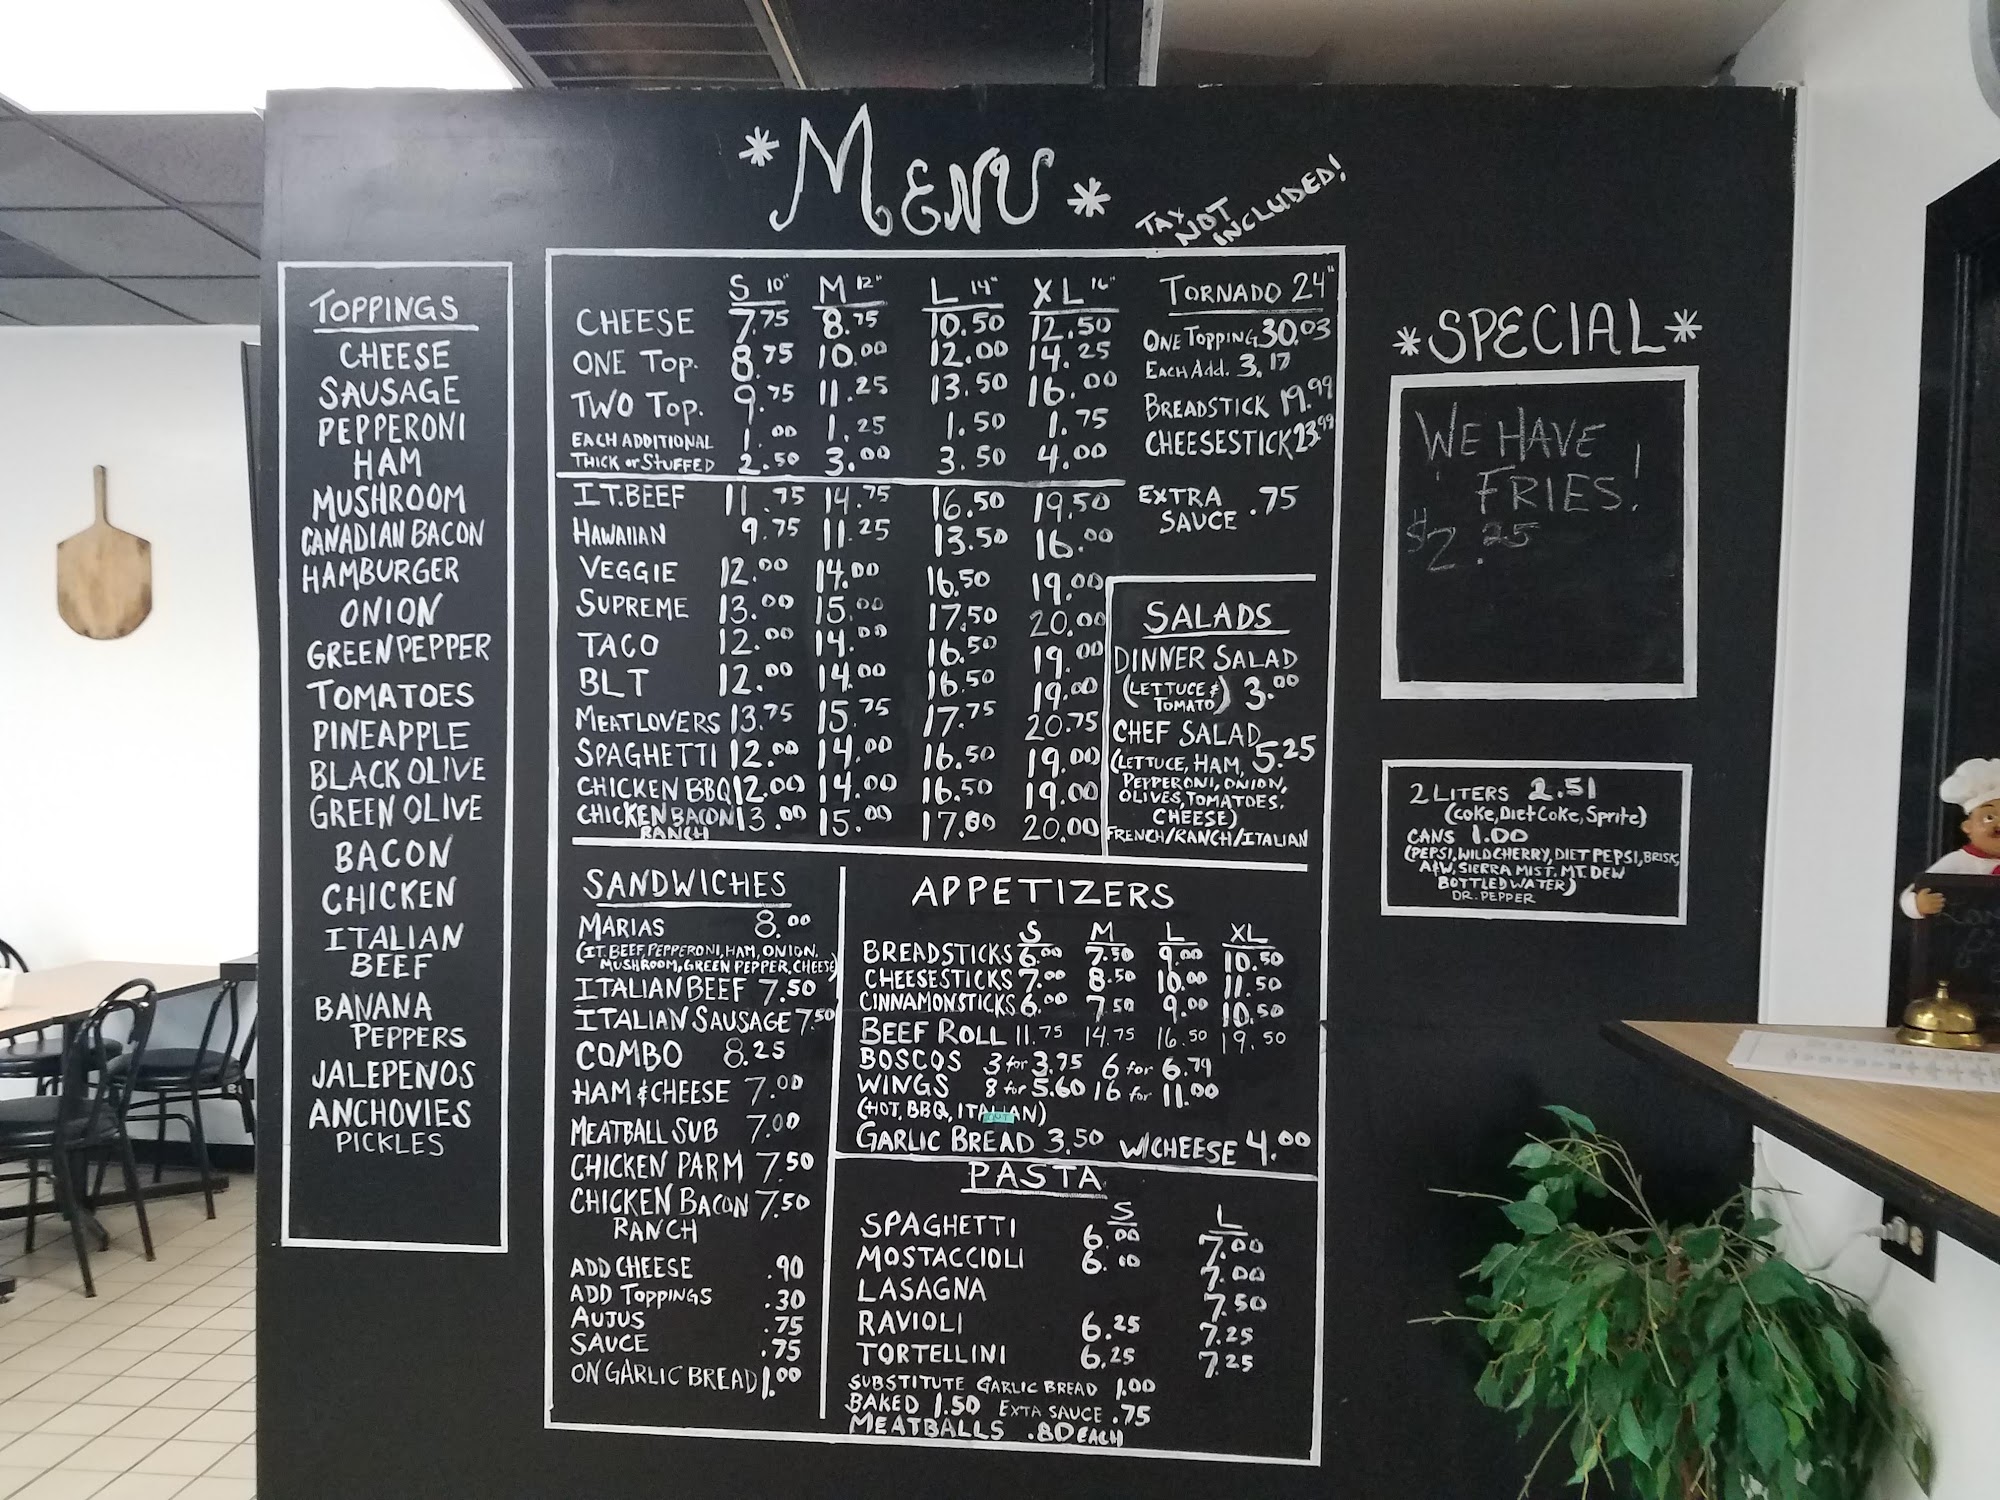 * MENU *
TAX NOT INCLUDED!
TOPPINGS
CHEESE
SAUSAGE
PEPPERONI
HAM
MUSHROOM
CANADIAN BACON
HAMBURGER
ONION
GREEN PEPPER
TOMATOES
PINEAPPLE
BLACK OLIVE
GREEN OLIVE
BACON
CHICKEN
ITALIAN
BEEF
BANANA
PEPPERS
JALEPENOS
ANCHOVIES
PICKLES
S 10" M 12" L 14" XL 16"
CHEESE 7.75 8.75 10.50 12.50
ONE TOP. 8.75 10.00 12.00 14.25
TWO TOP. 9.75 11.25 13.50 16.00
EACH ADDITIONAL 1.00 1.25 1.50 1.75
THICK or STUFFED 2.50 3.00 3.50 4.00
IT. BEEF 11.75 14.75 16.50 19.50
HAWAIIAN 9.75 11.25 13.50 16.00
VEGGIE 12.00 14.00 16.50 19.00
SUPREME 13.00 15.00 17.50 20.00
TACO 12.00 14.00 16.50 19.00
BLT 12.00 14.00 16.50 19.00
MEATLOVERS 13.75 15.75 17.75 20.75
SPAGHETTI 12.00 14.00 16.50 19.00
CHICKEN BBQ 12.00 14.00 16.50 19.00
CHICKEN BACON 13.00 15.00 17.00 20.00
RANCH
TORNADO 24"
ONE TOPPING 30.03
EACH ADD. 3.17
BREADSTICK 19.99
CHEESESTICK 23.99
EXTRA
SAUCE .75
SALADS
DINNER SALAD
(LETTUCE & TOMATO) 3.00
CHEF SALAD
(LETTUCE, HAM, 5.25
PEPPERONI, ONION,
OLIVES, TOMATOES,
CHEESE)
FRENCH/RANCH/ITALIAN
SANDWICHES
MARIAS 8.00
(IT. BEEF, PEPPERONI, HAM, ONION,
MUSHROOM, GREEN PEPPER, CHEESE)
ITALIAN BEEF 7.50
ITALIAN SAUSAGE 7.50
COMBO 8.25
HAM & CHEESE 7.00
MEATBALL SUB 7.00
CHICKEN PARM 7.50
CHICKEN BACON 7.50
RANCH
ADD CHEESE .90
ADD TOPPINGS .30
AUJUS .75
SAUCE .75
ON GARLIC BREAD 1.00
APPETIZERS
S M L XL
BREADSTICKS 6.00 7.50 9.00 10.50
CHEESESTICKS 7.00 8.50 10.00 11.50
CINNAMONSTICKS 6.00 7.50 9.00 10.50
BEEF ROLL 11.75 14.75 16.50 19.50
BOSCOS 3 for 3.75 6 for 6.79
WINGS 8 for 5.60 16 for 11.00
(HOT, BBQ, ITALIAN)
OUT
GARLIC BREAD 3.50 W/CHEESE 4.00
PASTA
S L
SPAGHETTI 6.00 7.00
MOSTACCIOLI 6.00 7.00
LASAGNA 7.50
RAVIOLI 6.25 7.25
TORTELLINI 6.25 7.25
SUBSTITUTE GARLIC BREAD 1.00
BAKED 1.50 EXTA SAUCE .75
MEATBALLS .80 EACH
*SPECIAL*
WE HAVE
FRIES!
$2.25
2 LITERS 2.51
(coke, Diet Coke, Sprite)
CANS 1.00
(PEPSI, WILD CHERRY, DIET PEPSI, BRISK,
A&W, SIERRA MIST. MT. DEW
BOTTLED WATER)
DR. PEPPER